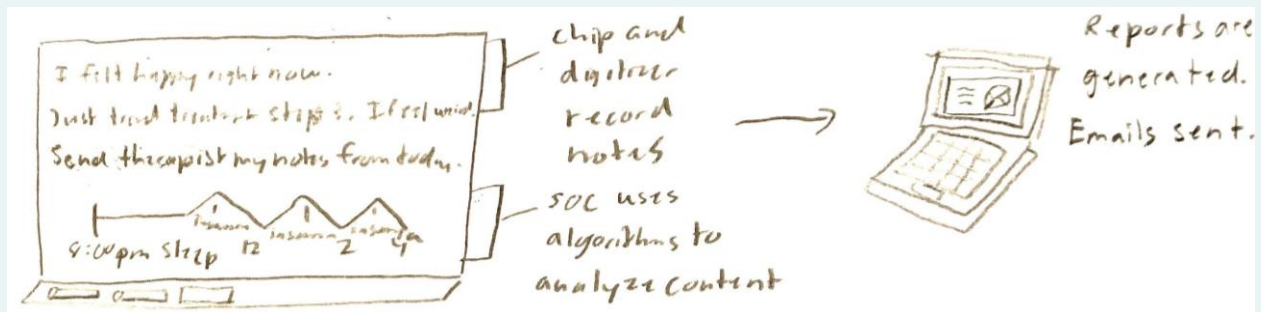 I felt happy right now.
Just tried treatment step 2. I feel weird.
Send therapist my notes from today.
insomnia insomnia insomnia
8:00pm sleep 12 2 4a
chip and
digitizer
record
notes
SOC uses
algorithms to
analyze content
Reports are
generated.
Emails sent.